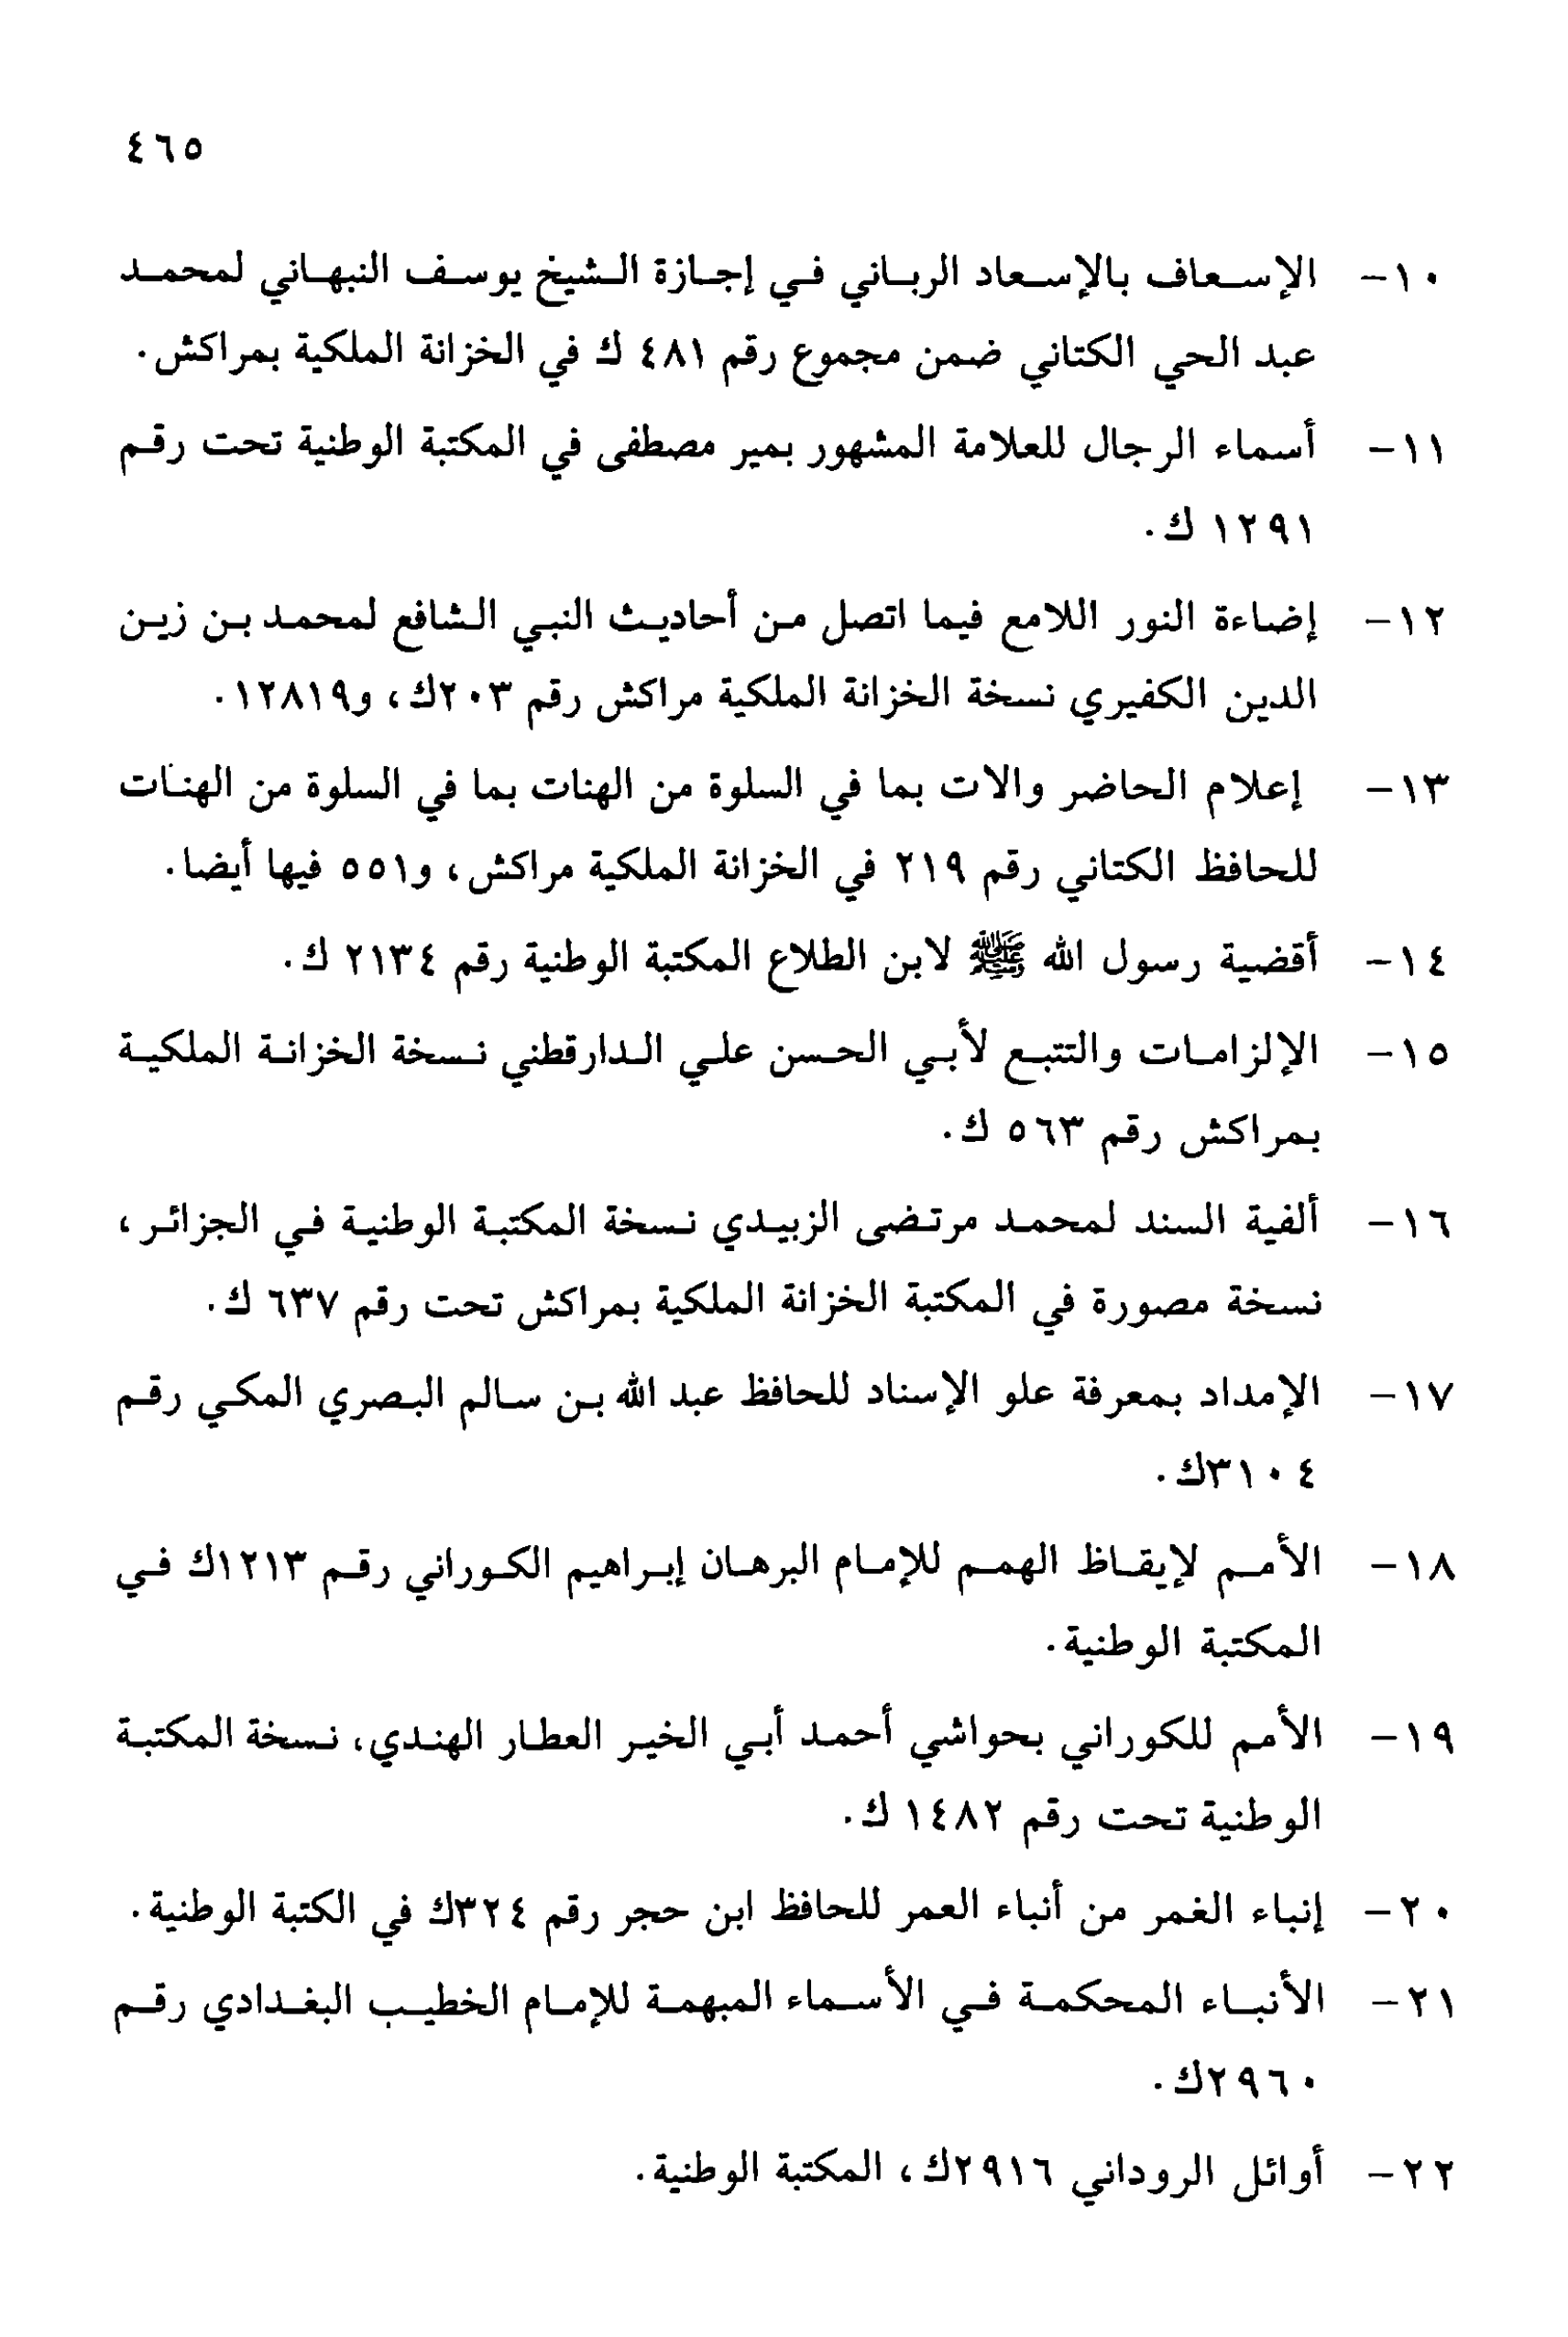 ٤٦٥
١٠- الإسعاف بالإسعاد الرباني في إجازة الشيخ يوسف النبهاني لمحمد
عبد الحي الكتاني ضمن مجموع رقم ٤٨١ ك في الخزانة الملكية بمراكش.
١١- أسماء الرجال للعلامة المشهور بمير مصطفى في المكتبة الوطنية تحت رقم
١٢٩١ ك.
١٢- إضاءة النور اللامع فيما اتصل من أحاديث النبي الشافع لمحمد بن زين
الدين الكفيري نسخة الخزانة الملكية مراكش رقم ٢٠٣ك، و١٢٨١٩.
١٣- إعلام الحاضر والات بما في السلوة من الهنات بما في السلوة من الهنات
للحافظ الكتاني رقم ٢١٩ في الخزانة الملكية مراكش، و٥٥١ فيها أيضا.
١٤- أقضية رسول الله ﷺ لابن الطلاع المكتبة الوطنية رقم ٢١٣٤ ك.
١٥- الإلزامات والتتبع لأبي الحسن علي الدارقطني نسخة الخزانة الملكية
بمراكش رقم ٥٦٣ ك.
١٦- ألفية السند لمحمد مرتضى الزبيدي نسخة المكتبة الوطنية في الجزائر،
نسخة مصورة في المكتبة الخزانة الملكية بمراكش تحت رقم ٦٣٧ ك.
١٧- الإمداد بمعرفة علو الإسناد للحافظ عبد الله بن سالم البصري المكي رقم
٣١٠٤ك.
١٨- الأمم لإيقاظ الهمم للإمام البرهان إبراهيم الكوراني رقم ١٢١٣ك في
المكتبة الوطنية.
١٩- الأمم للكوراني بحواشي أحمد أبي الخير العطار الهندي، نسخة المكتبة
الوطنية تحت رقم ١٤٨٢ ك.
٢٠- إنباء الغمر من أنباء العمر للحافظ ابن حجر رقم ٣٢٤ك في الكتبة الوطنية.
٢١- الأنباء المحكمة في الأسماء المبهمة للإمام الخطيب البغدادي رقم
٢٩٦٠ك.
٢٢- أوائل الروداني ٢٩١٦ك، المكتبة الوطنية.